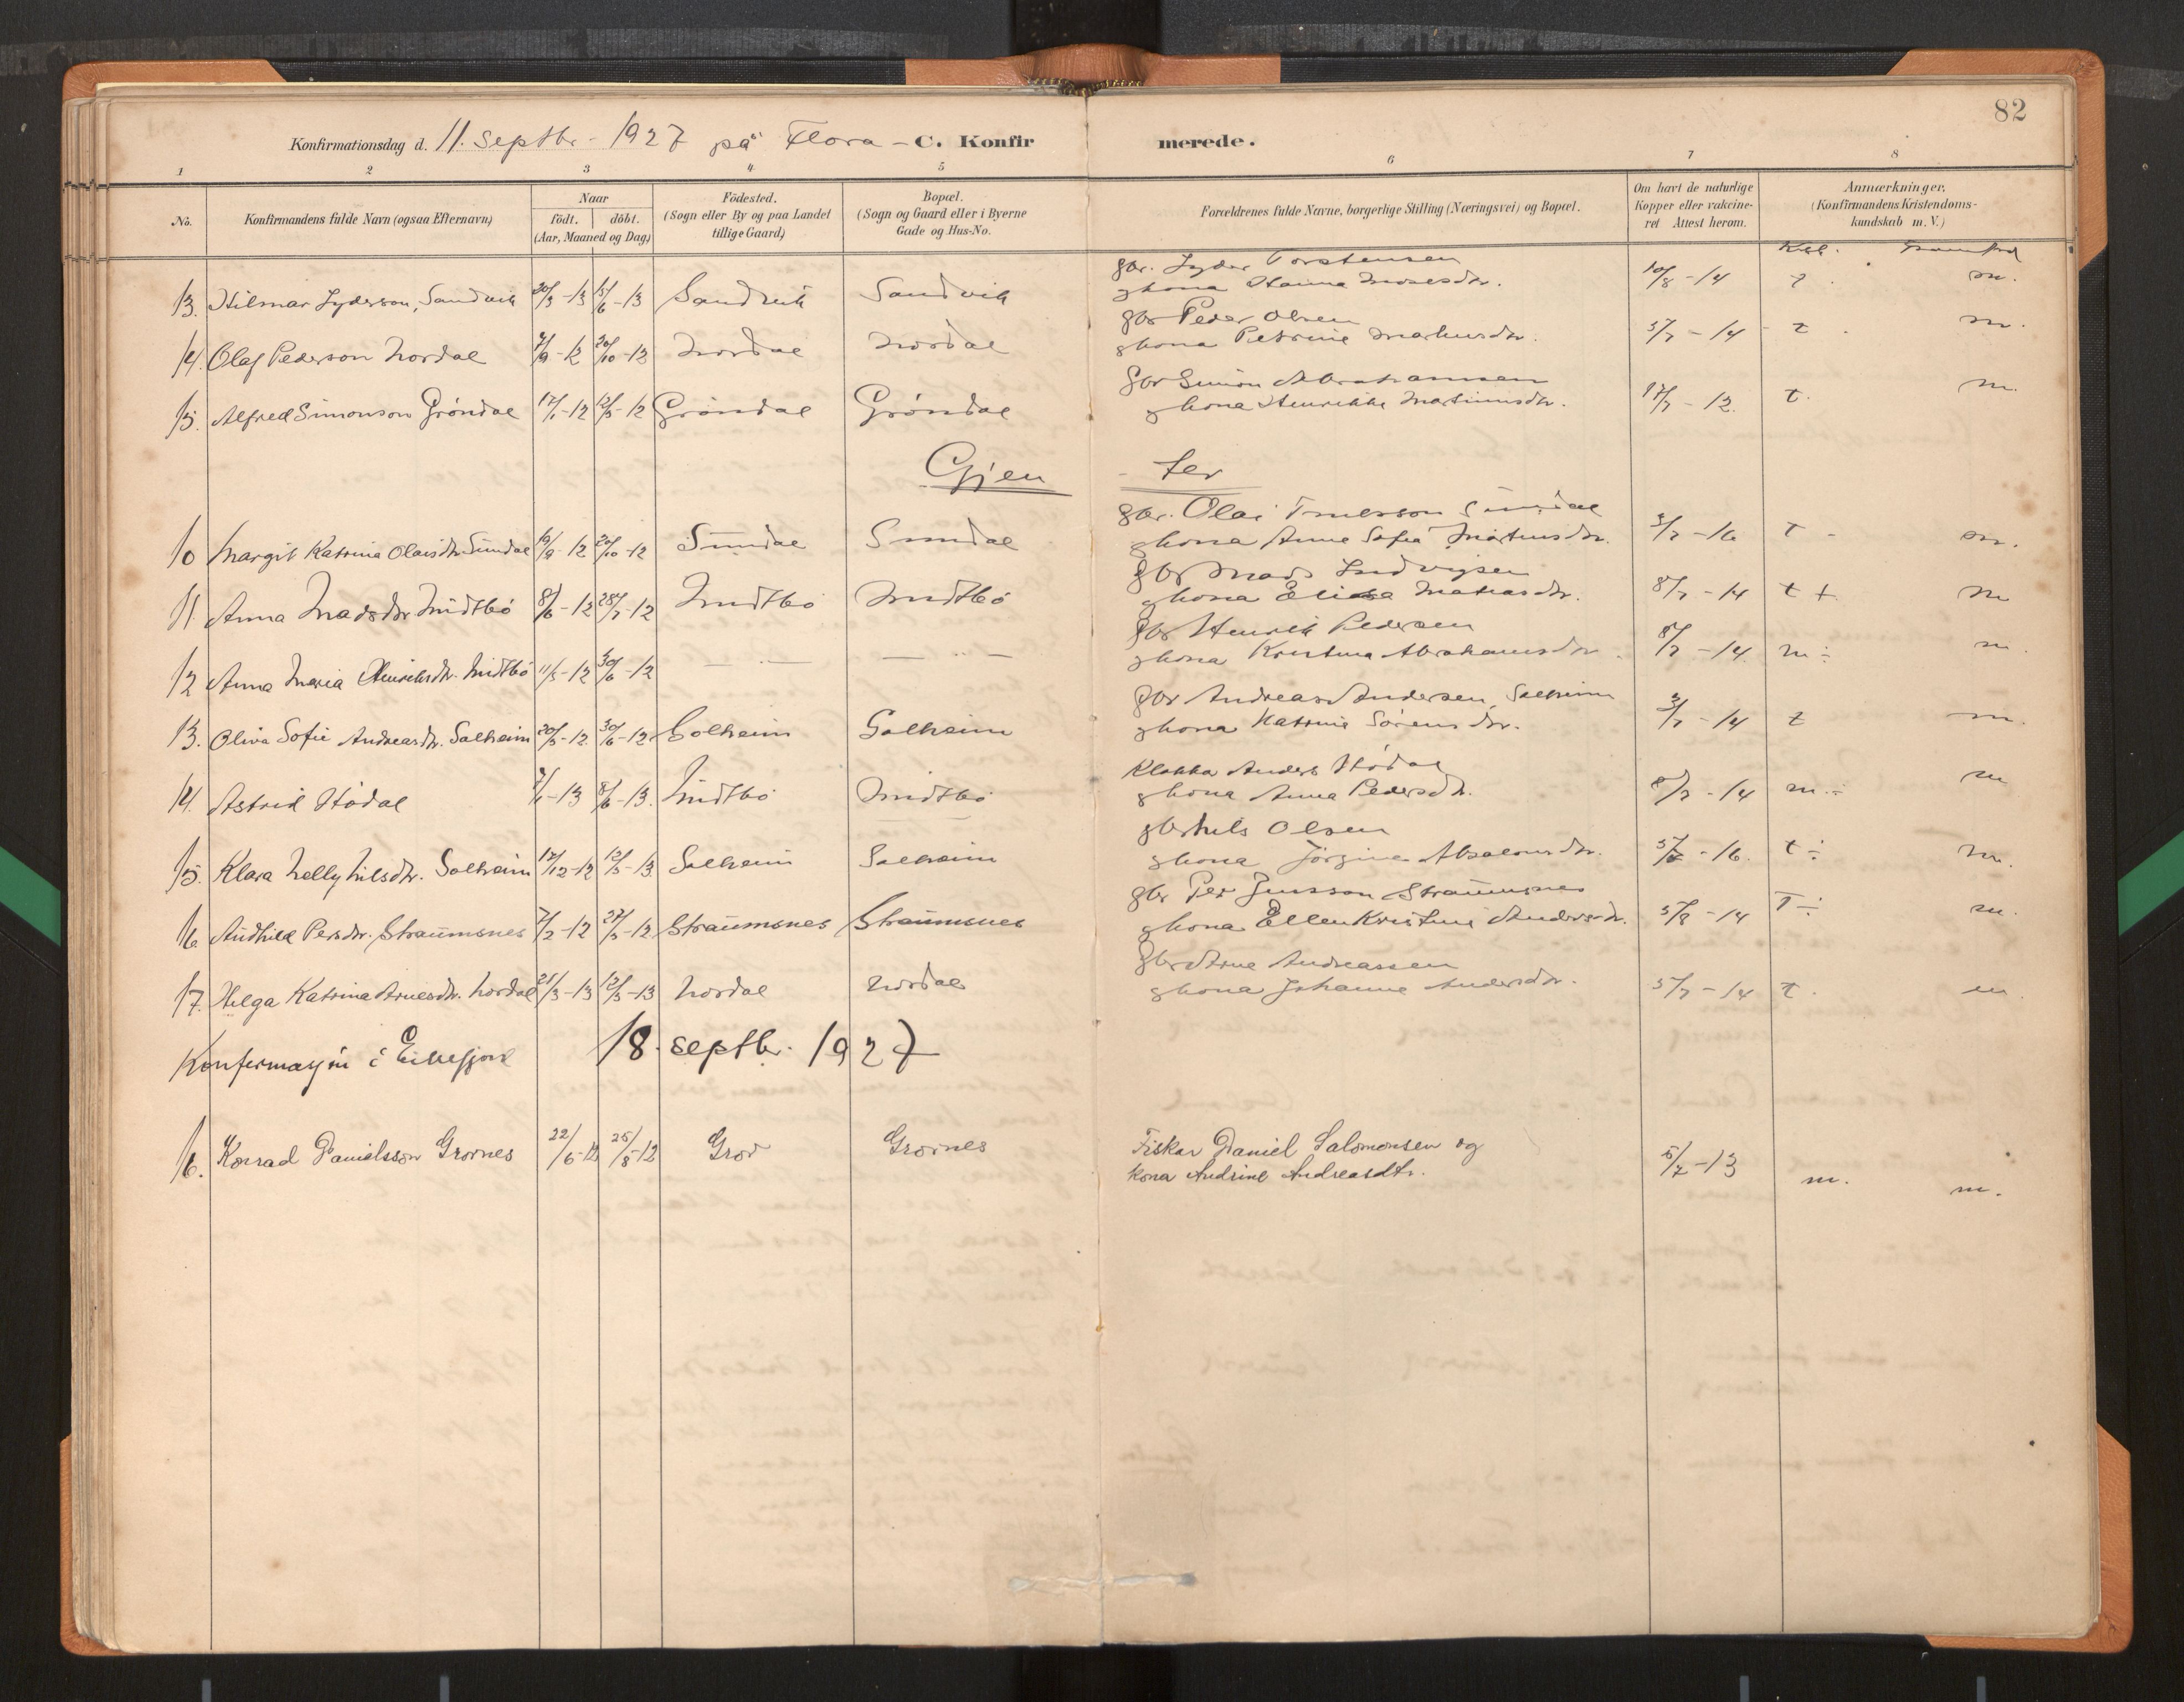 82
Konfirmationsdag d. 11. Septbr - 1927 på Flora - C. Konfirmerede.
1 2 3 4 5 6 7 8
No. Konfirmandens fulde Navn (ogsaa Efternavn) Naar födt. döbt. (Aar, Maaned og Dag) Födested. (Sogn eller By og paa Landet tillige Gaard) Bopæl. (Sogn og Gaard eller i Byerne Gade og Hus-No. Forældrenes fulde Navne, borgerlige Stilling (Næringsvei) og Bopæl. Om havt de naturlige Kopper eller vakcineret Attest herom. Anmærkninger. (Konfirmandens Kristendomskundskab m. V.)
gbr. Lyder Torstensen
13. Hilmar Lyderson, Sandvik 20/3-13 15/6-13 Sandvik Sandvik gkona Hanna Mosesdtr. 10/8-14 t. m.
gbr Peder Olsen
14. Olaf Pederson Nordal 7/9-12 20/10-12 Nordal Nordal gkona Petrine Markusdtr. 5/7-14 t. m.
gbr Simon Abrahamsen
15. Alfred Simonson Grøndal 17/1-12 12/5-12 Grøndal Grøndal gkona Henrikke Martinusdtr. 17/7-12. t. m.
Gjen - ter
gbr. Olai Truls​son Sundal
10 Margit Katrina Olaisdtr. Sundal 19/9-12 20/10-12 Sundal Sundal gkona Anne Sofia Mortensdtr. 3/7-16 T - m.
gbr Mads Ludvigsen
11. Anna Madsdtr Midtbø 8/6-12 28/7-12 Midtbø Midtbø gkona Elisa Matiasdtr. 8/7-14 t + m
gbr Henrik Pedersen
12 Anna Maria Henriksdtr. Midtbø 11/5-12 30/6-12 — " — — " — gkona Kristina Abrahamsdtr. 8/7-14 m ÷ m.
gbr Andreas Andersen, Solheim
13. Oliva Sofie Andreasdtr. Solheim 20/5-12. 30/6-12 Solheim Solheim gkona Katrine Sørensdtr. 3/7-14 t m.
Klokka Anders Hødal
14. Astrid Hødal 7/1-13 8/6-13. Midtbø Midtbø gkona Anna Pedersdtr. 8/7-14 m ÷ m
gbr Nils Olsen
15. Klara Nelly Nilsdtr. Solheim 17/12-12 12/5-13 Solheim Solheim gkona Jørgine Absalonsdtr. 5/8-16. t ÷ m.
gbr Per Jensson Straumsnes
16. Audhild Persdtr. Straumsnes 7/2-12 27/5-12 Straumsnes Straumsnes gkona Ellen Kristine Andersdtr. 5/8-14 T ÷ m.
gbr Arne Andreassen
17. Helga Katrina Arnesdtr. Nordal 21/3-13 12/5-13 Nordal Nordal gkona Johanne Andersdtr. 5/7-14 t. m.
Konfermasjon i Eikefjord 18. septbr. 1927
16. Konrad Danielsson Grovnes 22/6-12 25/8-12 Grov Grovnes Fiskar Daniel Salomonsen og
kona Andrine Andreasdtr. 5/7-13 m. m.